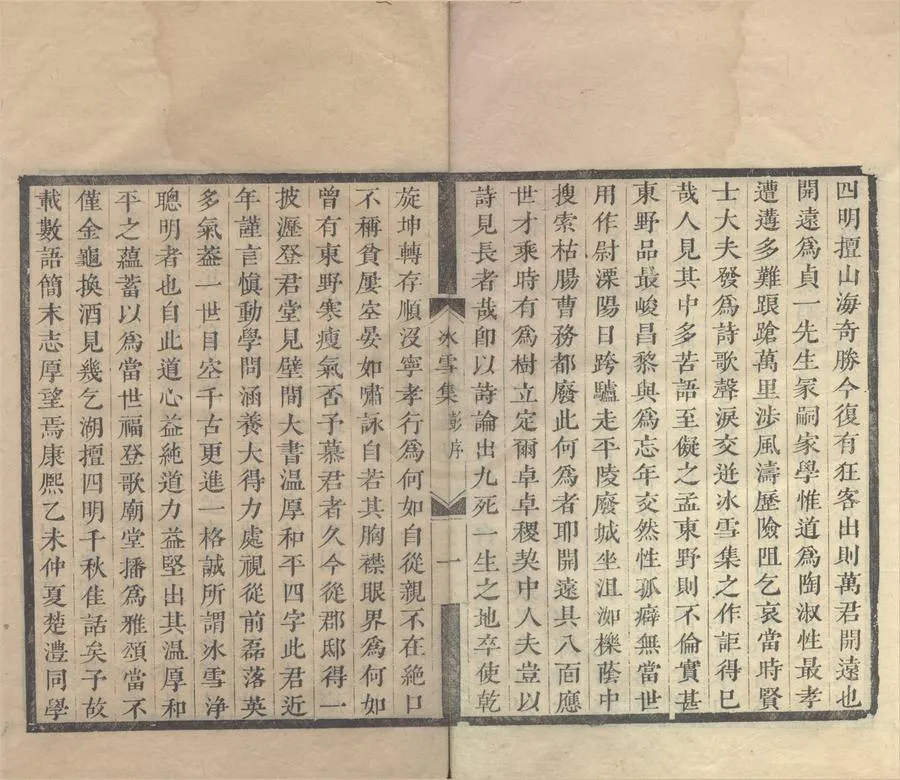 四明擅山海奇勝今復有狂客出則萬君開遠也
開遠爲貞一先生冢嗣家學惟道爲陶淑性最孝
遭遘多難踉蹌萬里涉風濤歷險阻乞哀當時賢
士大夫發爲詩歌聲淚交迸冰雪集之作詎得已
哉人見其中多苦語至儗之孟東野則不倫實甚
東野品最峻昌黎與爲忘年交然性孤癖無當世
用作尉溧陽日跨驢走平陵廢城坐沮洳櫟蔭中
搜索枯腸曹務都廢此何爲者耶開遠具八面應
世才乘時有爲樹立定爾卓卓稷契中人夫豈以
詩見長者哉卽以詩論出九死一生之地卒使乾
冰雪集 彭序 一
旋坤轉存順沒寧孝行爲何如自從親不在絶口
不稱貧屢空晏如嘯詠自若其胸襟眼界爲何如
曾有東野寒瘦氣否予慕君者久今從郡邸得一
披瀝登君堂見壁間大書温厚和平四字此君近
年謹言愼動學問涵養大得力處視從前磊落英
多氣葢一世目空千古更進一格誠所謂冰雪淨
聰明者也自此道心益純道力益堅出其温厚和
平之蘊蓄以爲當世福登歌廟堂播爲雅頌當不
僅金龜換酒見幾乞湖擅四明千秋佳話矣予故
載數語簡末志厚望焉康熙乙未仲夏楚澧同學